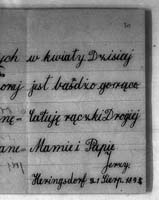 ych w kwiaty Dzisiaj
onej jest bardzo gorąco
nę - Całuję rączki Drogiej
ane - Mamie i Papie
Jerzy.
Heringsdorf 21 Sierp. 1898